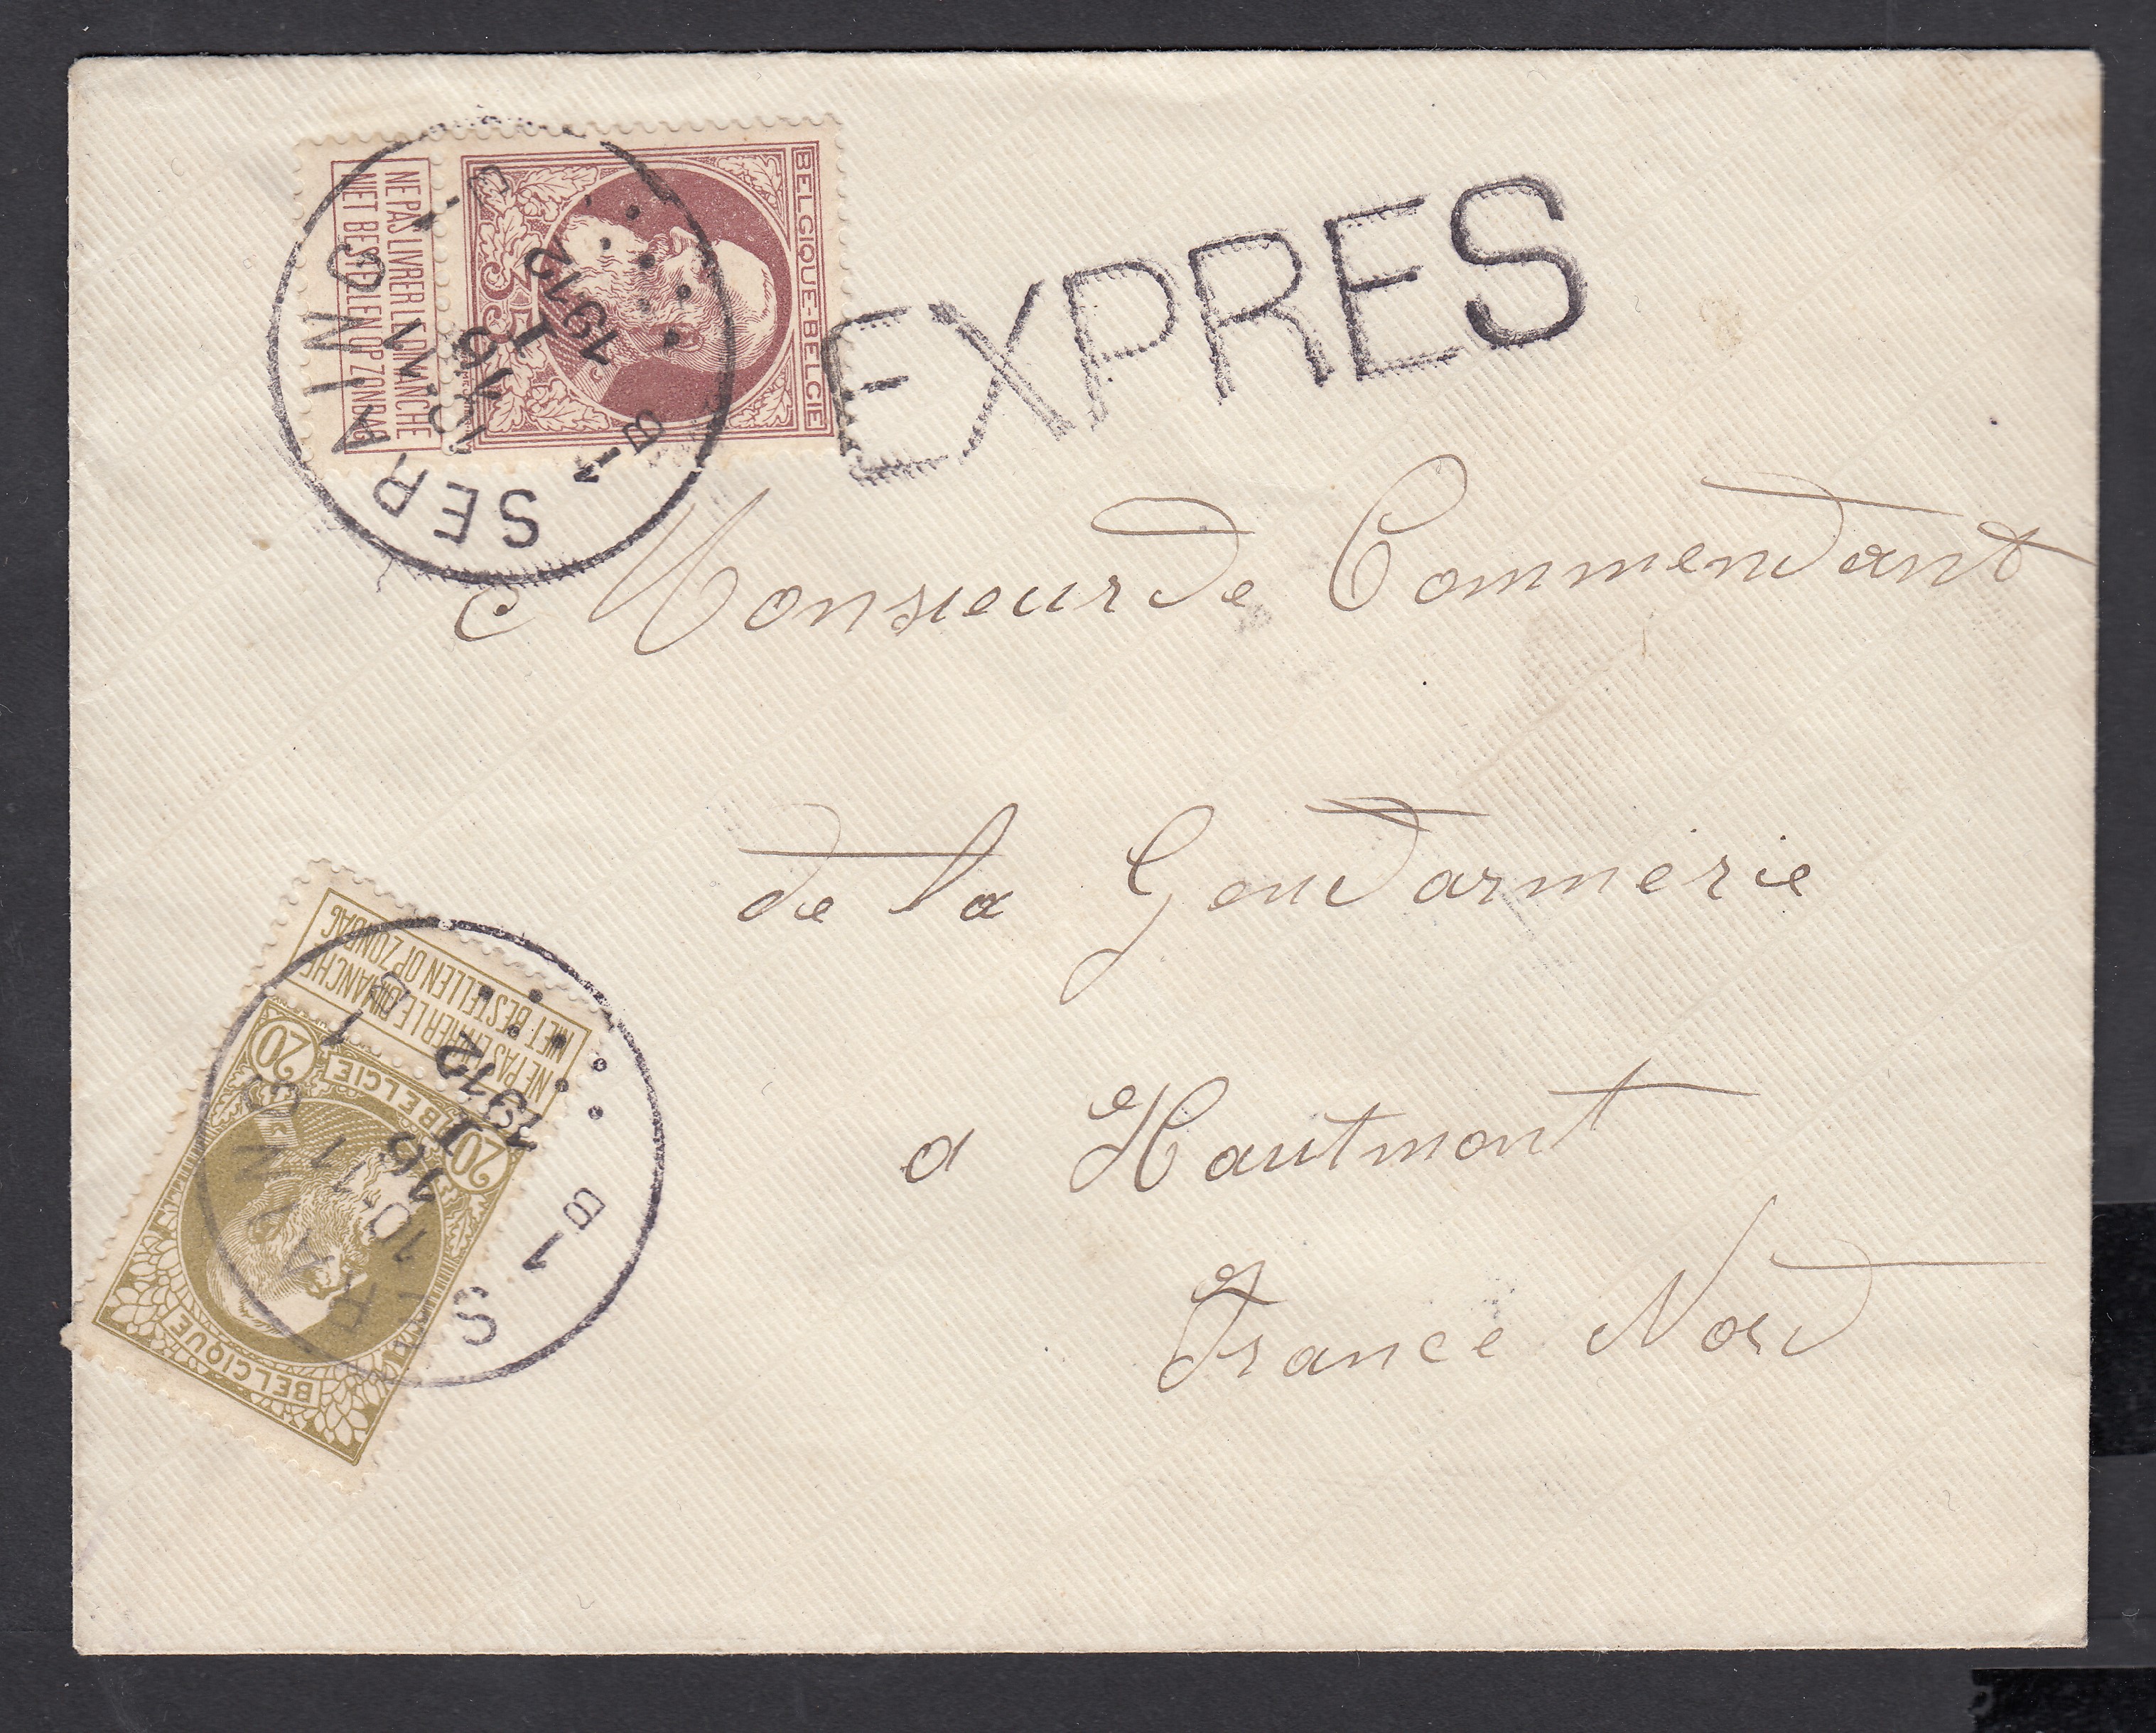 BELGIQUE-BELGIE
35
NE PAS LIVRER LE DIMANCHE
NIET BESTELLEN OP ZONDAG
SERAING
1B
1912
EXPRES
Monsieur de Commendant
de la Gendarmerie
a Hautmont
France Nord
NE PAS LIVRER LE DIMANCHE
NIET BESTELLEN OP ZONDAG
20 BELGIE 20
BELGIQUE
SERAING
1B
10-11
16 I
1912
1B